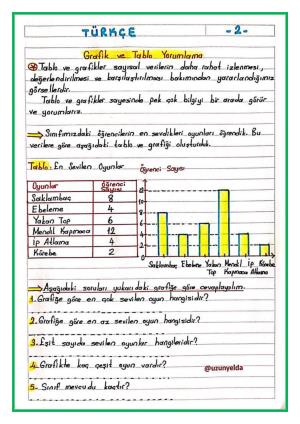 TÜRKÇE
-2-
Grafik ve Tablo Yorumlama
Tablo ve grafikler sayısal verilerin daha rahat izlenmesi,
değerlendirilmesi ve karşılaştırılması bakımından yararlandığımız
görsellerdir.
Tablo ve grafikler sayesinde pek çok bilgiyi bir arada görür
ve yorumlarız.
Sınıfımızdaki öğrencilerin en sevdikleri oyunları öğrendik. Bu
verilere göre aşağıdaki tablo ve grafiği oluşturduk.
Tablo: En Sevilen Oyunlar
Oyunlar Öğrenci Sayısı
Saklambaç 8
Ebeleme 4
Yakan Top 6
Mendil Kapmaca 12
İp Atlama 4
Körebe 2
Öğrenci Sayısı
12
10
8
6
4
2
Saklambaç Ebeleme Yakan Mendil İp Körebe
Top Kapmaca Atlama
Aşağıdaki soruları yukarıdaki grafiğe göre cevaplayalım.
1-Grafiğe göre en çok sevilen oyun hangisidir?
2-Grafiğe göre en az sevilen oyun hangisidir?
3-Eşit sayıda sevilen oyunlar hangileridir?
4-Grafikte kaç çeşit oyun vardır?
@uzunyelda
5- Sınıf mevcudu kaçtır?